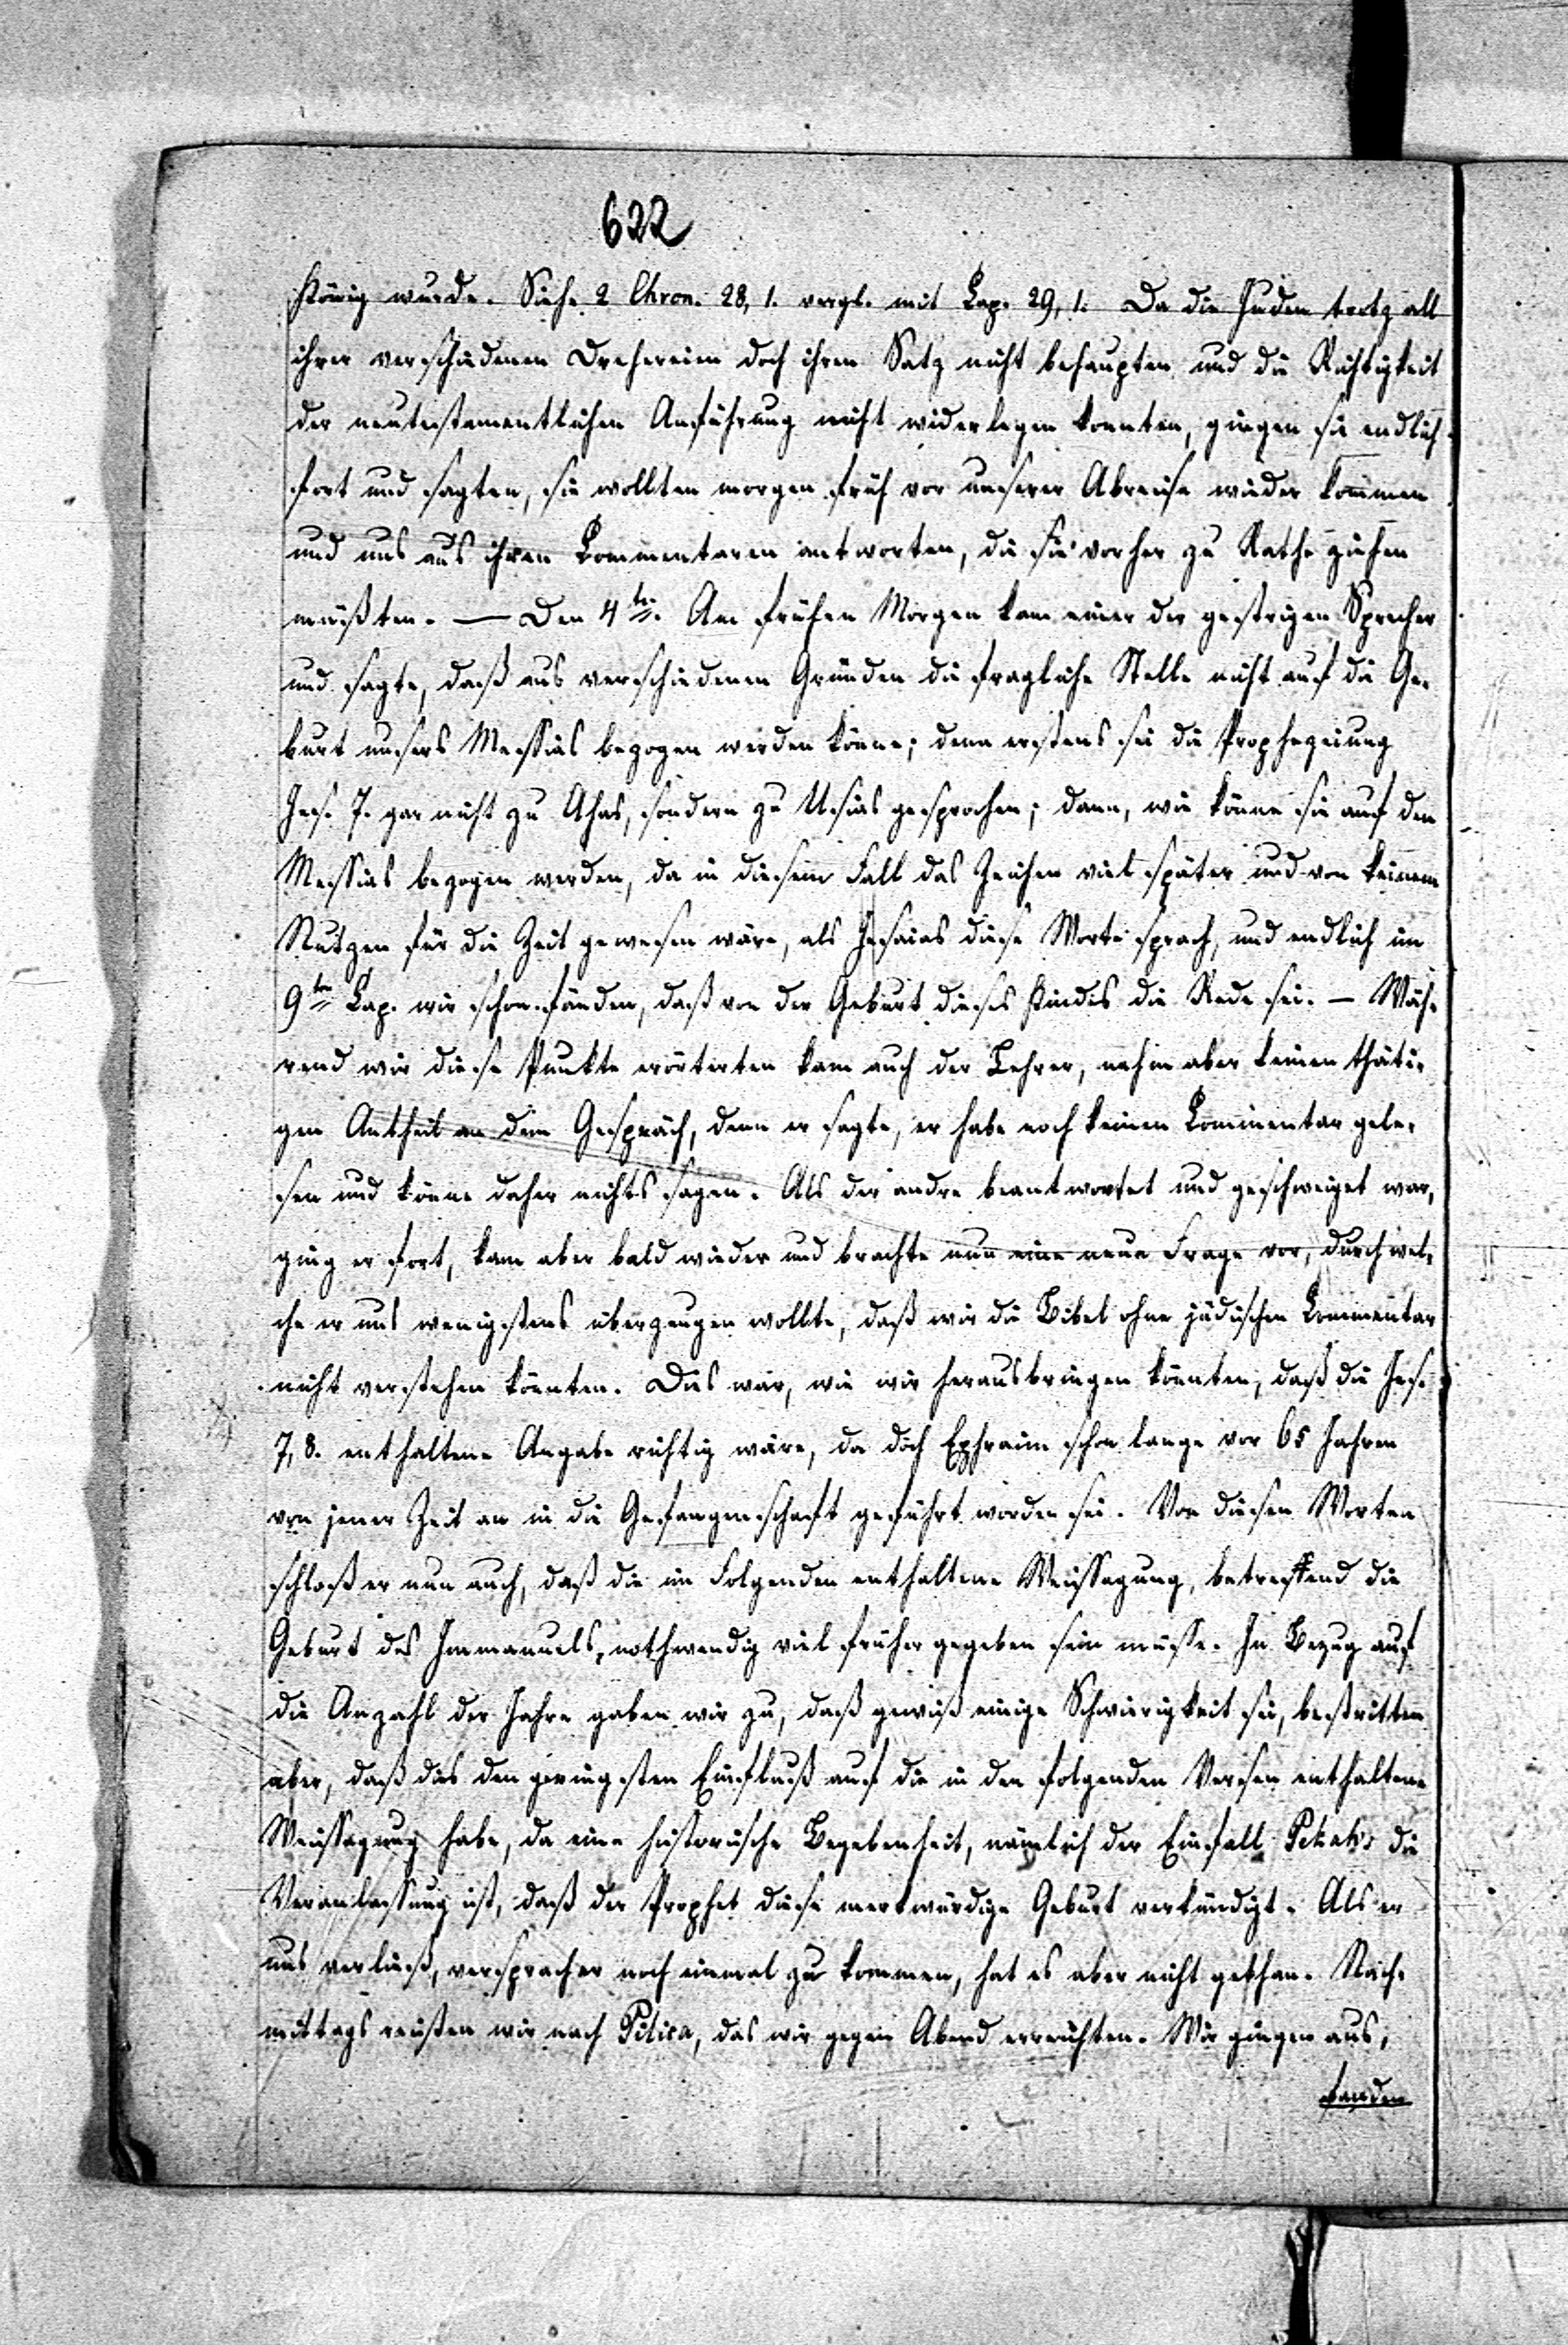 622
König wurde. Siehe 2 Chron. 28, 1. vergl. mit Cap. 29, 1. Da die Juden trotz all
ihrer verschiedenen Drehereien doch ihren Satz nicht behaupten und die Richtigkeit
der neutestamentlichen Anführung nicht widerlegen konnten, gingen sie endlich
fort und sagten, sie wollten morgen früh vor unserer Abreise wieder kommen
und uns aus ihren Commentaren antworten, die sie vorher zu Rathe ziehen
müßten. — Den 4ten. Am frühen Morgen kam einer der gestrigen Sprecher
und sagte, daß aus verschiedenen Gründen die fragliche Stelle nicht auf die Ge-
burt unsers Messias bezogen werden könne; denn erstens sei die Prophezeiung
Jes. 7. gar nicht zu Ahas, sondern zu Usias gesprochen; dann, wie könne sie auf den
Messias bezogen werden, da in diesem Fall das Zeichen viel später und von keinem
Nutzen für die Zeit gewesen wäre, als Jesaias diese Worte sprach, und endlich im
9ten Cap. wir schon fänden, daß von der Geburt dieses Kindes die Rede sei. — Wäh-
rend wir diese Punkte erörterten kam auch der Lehrer, nahm aber keinen thäti-
gen Antheil an dem Gespräch, denn er sagte, er habe noch keinen Commentar gele-
sen und könne daher nichts sagen. Als der andre beantwortet und geschweiget war,
ging er fort, kam aber bald wieder und brachte nun eine neue Frage vor, durch wel-
che er uns wenigstens überzeugen wollte, daß wir die Bibel ohne jüdischen Commentar
nicht verstehen könnten. Dies war, wie wir herausbringen könnten, daß die Jes.
7, 8. enthaltene Angabe richtig wäre, da doch Ephraim schon lange vor 65 Jahren
von jener Zeit an in die Gefangenschaft geführt worden sei. Von diesen Worten
schloß er nun auch, daß die im Folgenden enthaltene Weissagung, betreffend die
Geburt des Immanuels, nothwendig viel früher gegeben sein müsse. In Bezug auf
die Anzahl der Jahre gaben wir zu, daß gewiß einige Schwierigkeit sei, bestritten
aber, daß dies den geringsten Einfluß auf die in den folgenden Versen enthaltene
Weissagung habe, da eine historische Begebenheit, nämlich der Einfall Pekahs die
Veranlassung ist, daß der Prophet diese merkwürdige Geburt verkündigt. Als er
uns verließ, versprach er noch einmal zu kommen, hat es aber nicht gethan. Nach-
mittags reisten wir nach Pilica, das wir gegen Abend erreichten. Wir gingen aus,
fanden